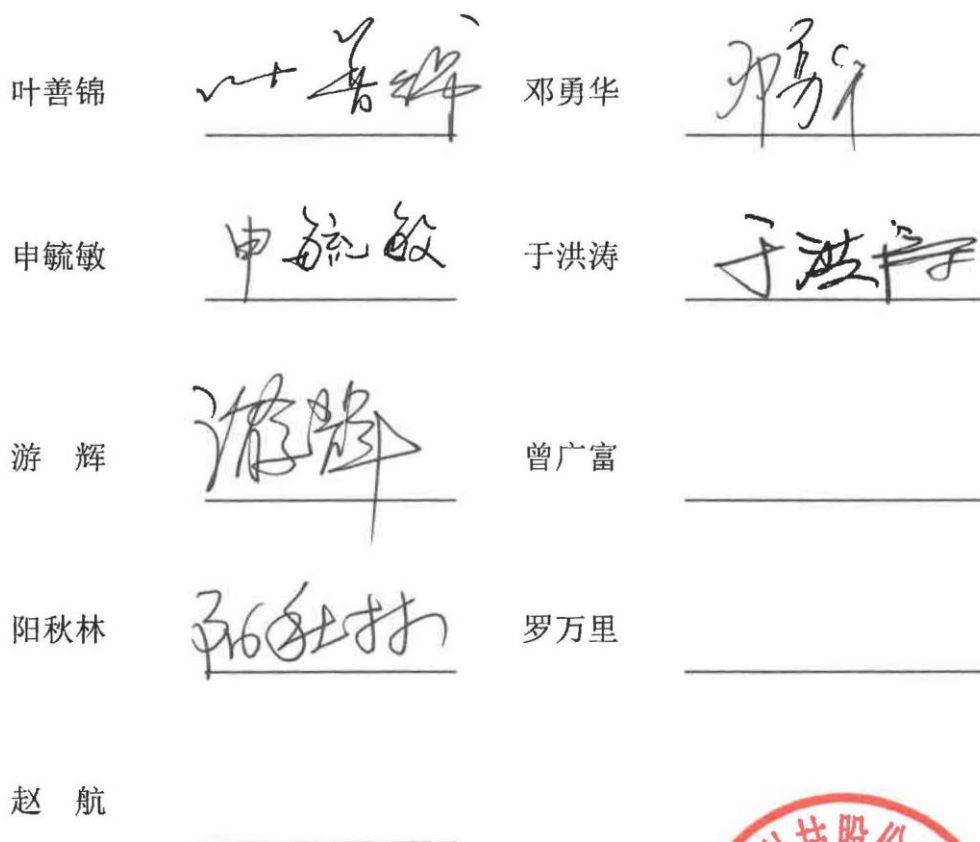 叶善锦 叶善锦 邓勇华 邓勇华
申毓敏 申毓敏 于洪涛 于洪涛
游 辉 游辉 曾广富
阳秋林 阳秋林 罗万里
赵 航
技股份